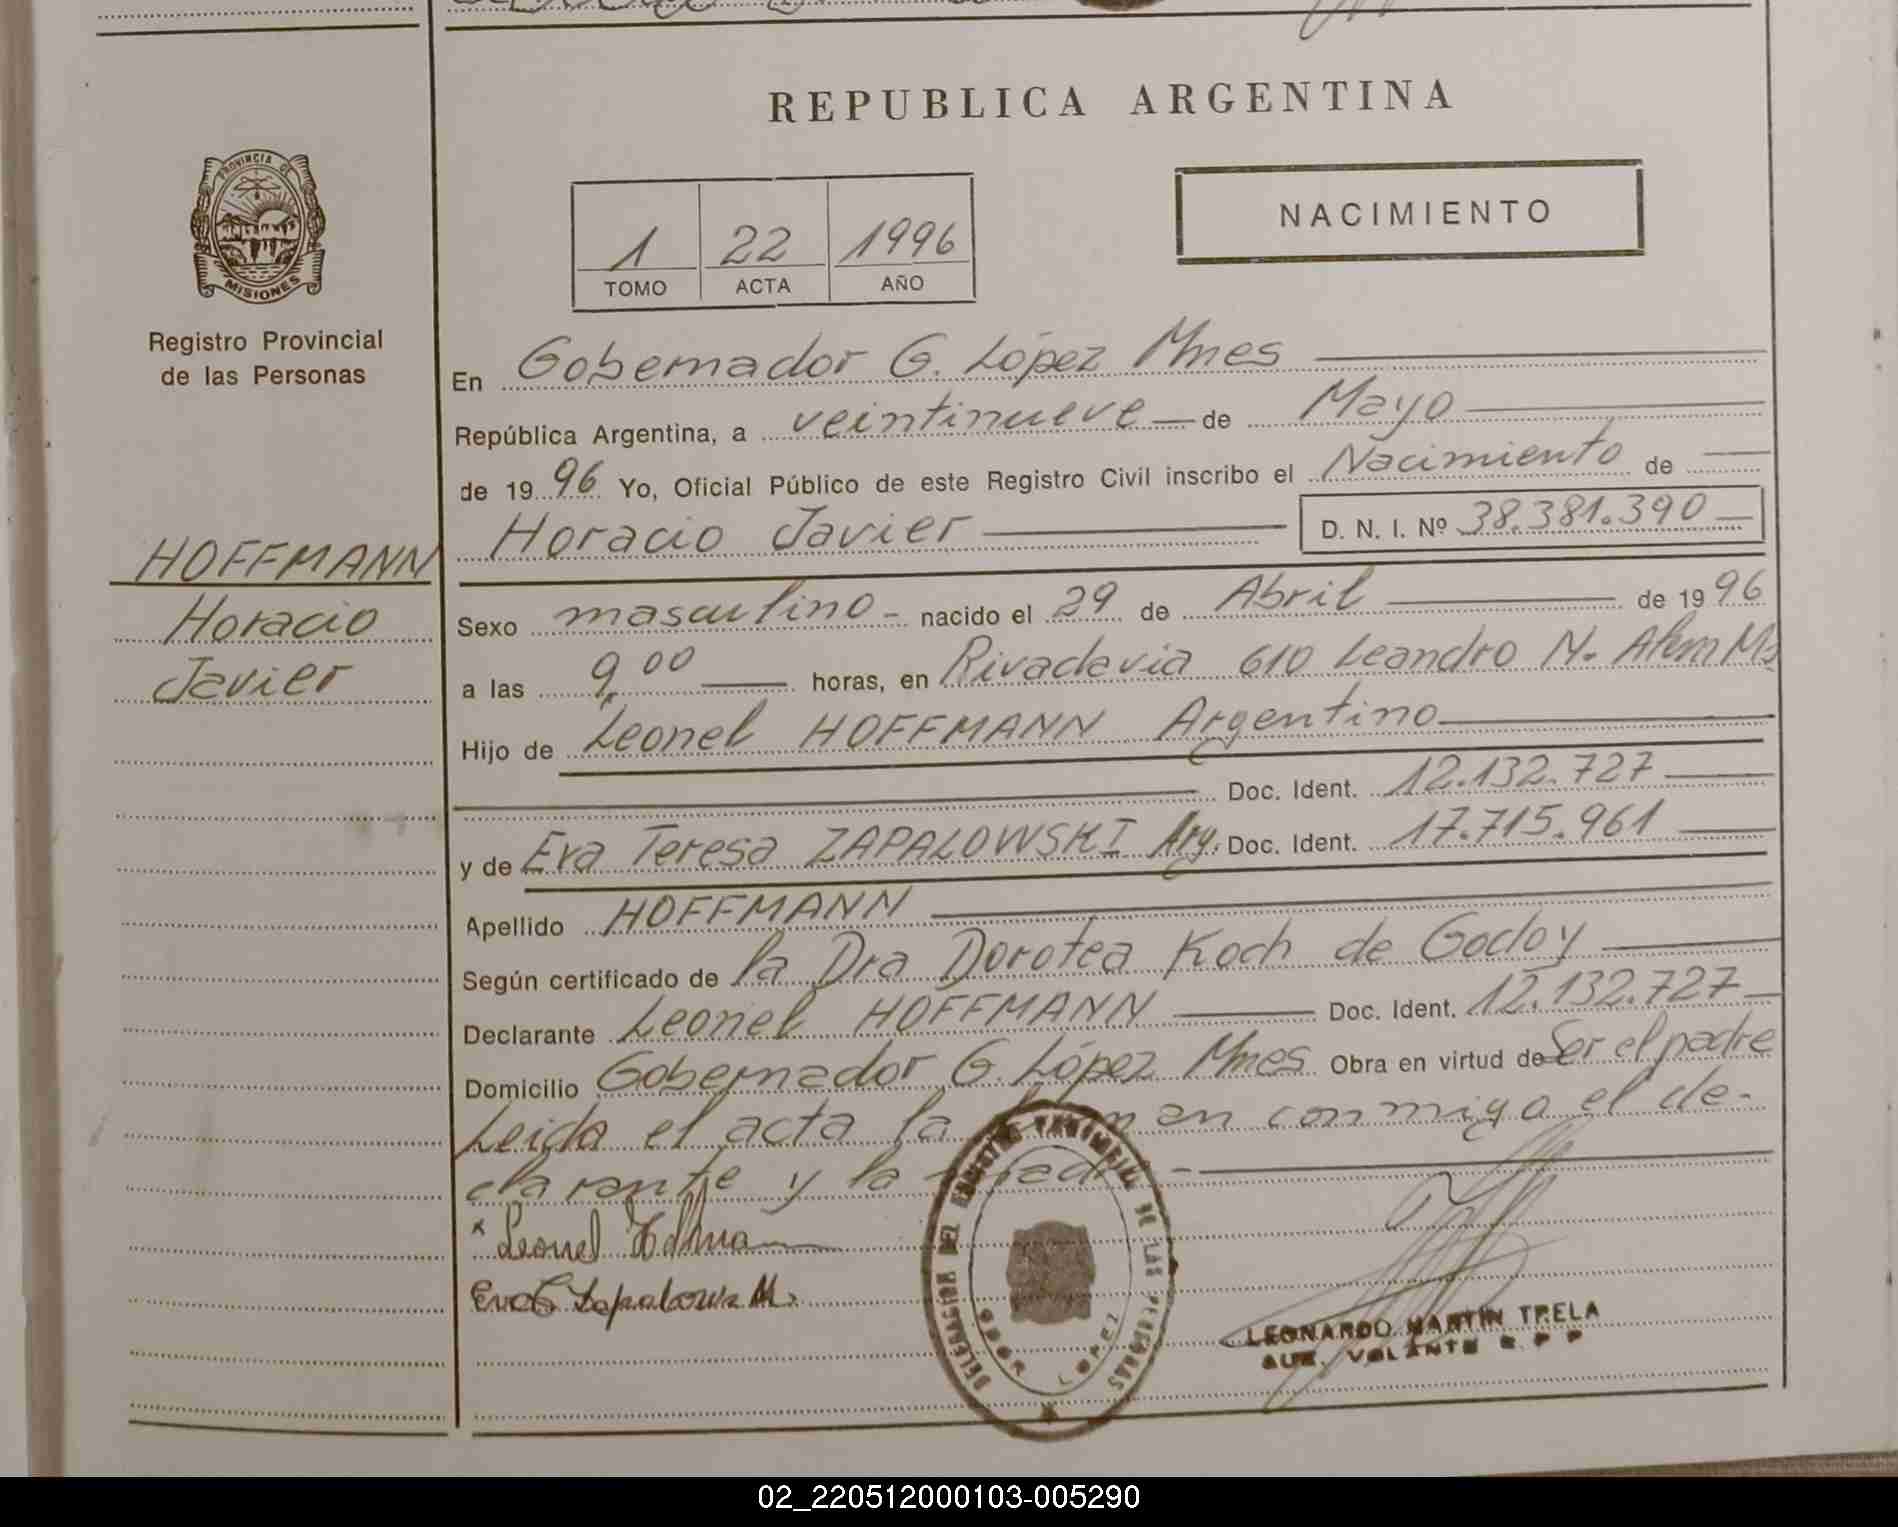 REPUBLICA ARGENTINA
PROVINCIA DE
MISIONES
Registro Provincial
de las Personas
1 22 1996
TOMO ACTA AÑO
NACIMIENTO
En Gobernador G. López Mnes
República Argentina, a veintinueve de Mayo
de 1996 Yo, Oficial Público de este Registro Civil inscribo el Nacimiento de
Horacio Javier D. N. I. Nº 38.381.390
HOFFMANN
Horacio
Javier
Sexo masculino nacido el 29 de Abril de 1996
a las 9,00 horas, en Rivadavia 610 Leandro N. Alem Ms
Hijo de Leonel HOFFMANN Argentino
Doc. Ident. 12.132.727
y de Eva Teresa ZAPALOWSKI Arg. Doc. Ident. 17.715.961
Apellido HOFFMANN
Según certificado de la Dra Dorotea Koch de Godoy
Declarante Leonel HOFFMANN Doc. Ident. 12.132.727
Domicilio Gobernador G. López Mnes Obra en virtud de Ser el padre
Leida el acta la firman conmigo el de-
clarante y la madre -
x Leonel
DELEGACION DEL REGISTRO PROVINCIAL DE LAS PERSONAS
GBDOR LOPEZ
LEONARDO MARTIN TRELA
AUX. VOLANTE R. P. P
02_220512000103-005290